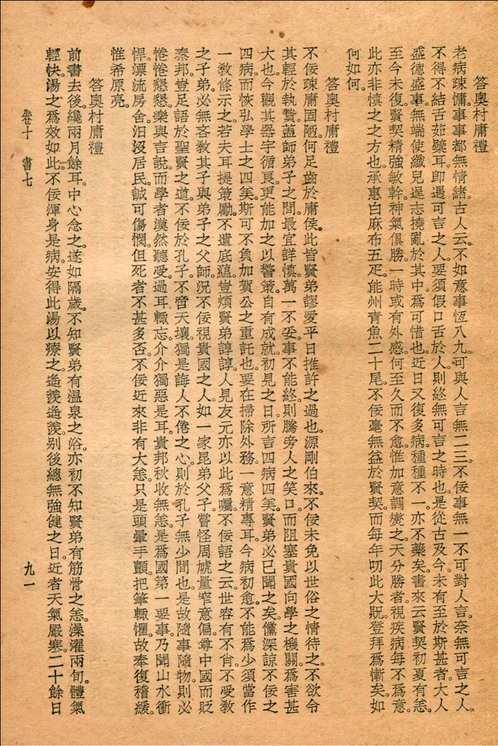 答奧村庸禮
老病疎慵事事都無情緒古人云不如意事恆八九可與人言無二三不佞事無一不可對人言奈無可言之人
不得不結舌茹聽耳即遇可言之人要須假口舌於人則終無可言之時也是從古及今未有至於斯甚者大人
盛德盛事無端使纖兒逞志撓亂於其中為可惜也近日又復多病種種不一亦不藥矣書來云賢契初夏有恙
至今未復賢契精強敏幹神氣俱勝一時或有外感何至久而不愈惟加意調攝之天分勝者視疾病每不為意
此亦非慎之之方也承惠白麻布五疋能州青魚二十尾不佞毫無益於賢契而每年叨此大貺登拜為慚矣如
何如何
答奧村庸禮
不佞疎庸固陋何足齒於庸俟此皆賢弟謬愛平日推許之過也源剛伯來不佞未免以世俗之情待之不欲令
其輕於執贄蓋師弟子之間最宜詳慎萬一不妥事不能終則騰旁人之笑口而阻塞貴國向學之機關為害甚
大也今觀其器宇循良更能加之以警策自有成就初見之日所言四病四美賢弟必已聞之矣儻深諒不佞之
四病而恢弘學士之四美斯可不負加賀公之重託也要在掃除外務一意精專耳今病初愈不能為少須當作
一教條示之若夫耳提策勵不遺底蘊豈煩賢弟諄諄人見友元亦以此為囑不佞語之云世容有不肯不受教
之子弟必無客教其子與弟子之父師況不佞視貴國之人如一家昆弟父子嘗怪周墟量窄意偏尊中國而貶
秦邦豈足語於聖賢之道不佞於孔子不啻天壤獨是誨人不倦之心則於孔子無少間也是故隨事隨物則必
惓惓懇懇樂與言說而學者漠然聽受過耳輒忘介介獨惡是耳貴邦秋收無恙是為國第一要事乃聞山水衝
悍漂流房舍汨沒居民誠可傷憫但死者不甚多否不佞近來非有大恙只是頭暈手顫把筆輒懼故奉復稽緩
惟希原亮
答奧村庸禮
前書去後纔兩月餘耳中心念之遂如隔歲不知賢弟有溫泉之浴亦初不知賢弟有筋骨之恙澡濯兩旬體氣
輕快湯之為效如此不佞渾身是病安得此湯以療之遙羨遙羨別後總無強健之日近者天氣嚴寒二十餘日
卷十 書七
九一